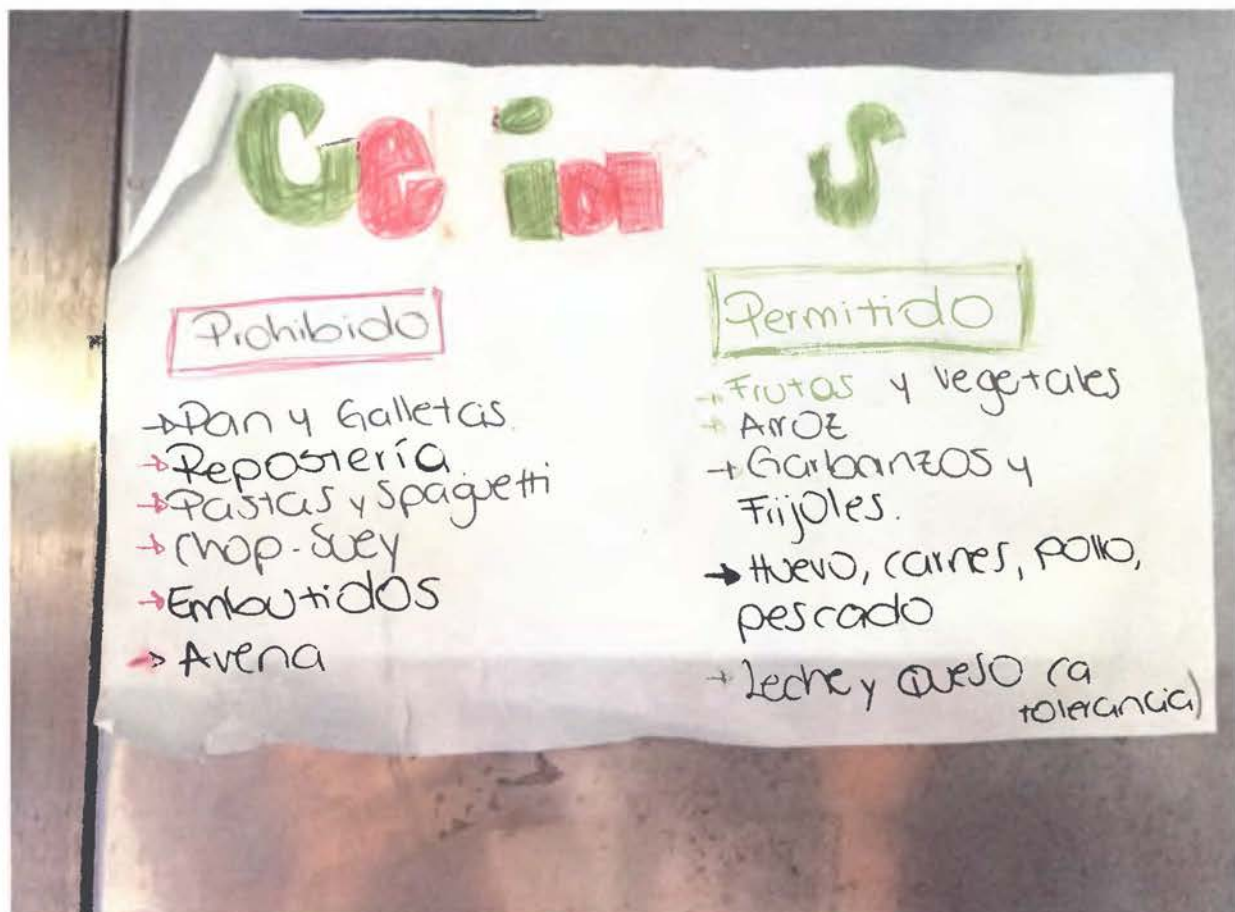 Prohibido
→Pan y Galletas.
→Repostería
→Pastas y Spaguetti
→Chop-Suey
→Embutidos
→Avena
Permitido
→Frutas y vegetales
→Arroz
→Garbanzos y
Frijoles.
→Huevo, carnes, pollo,
pescado
→Leche y Queso (a
tolerancia)